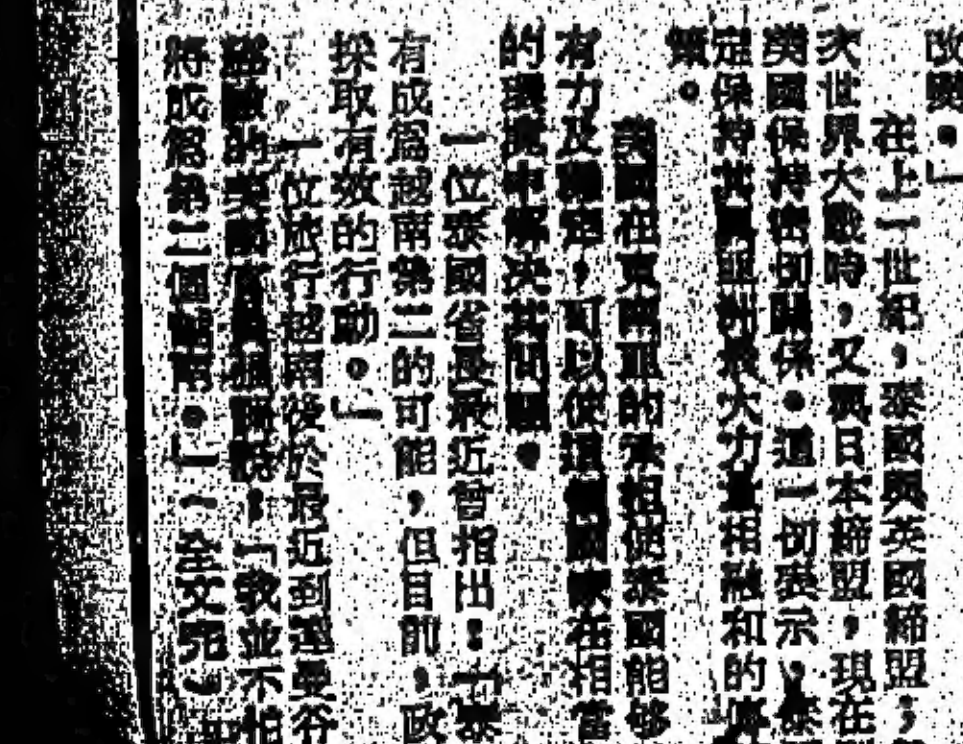 改變。」
在上一世紀，泰國與英國締盟，
次世界大戰時，又與日本締盟，現在
美國保持密切關係。這一切表示，泰
定保持其與亞洲最大力量相融和的傳
策。
美國在東南亞的承担使泰國能够
有力及穩定，可以使這個國家在相當
的環境中解決其問題。
一位泰國省長最近曾指出：「泰
有成爲越南第二的可能，但目前，政
採取有效的行動。」
一位旅行越南後於最近到達曼谷
的美國官員
說：「我並不怕
將成爲第二個越南。」（全文完）